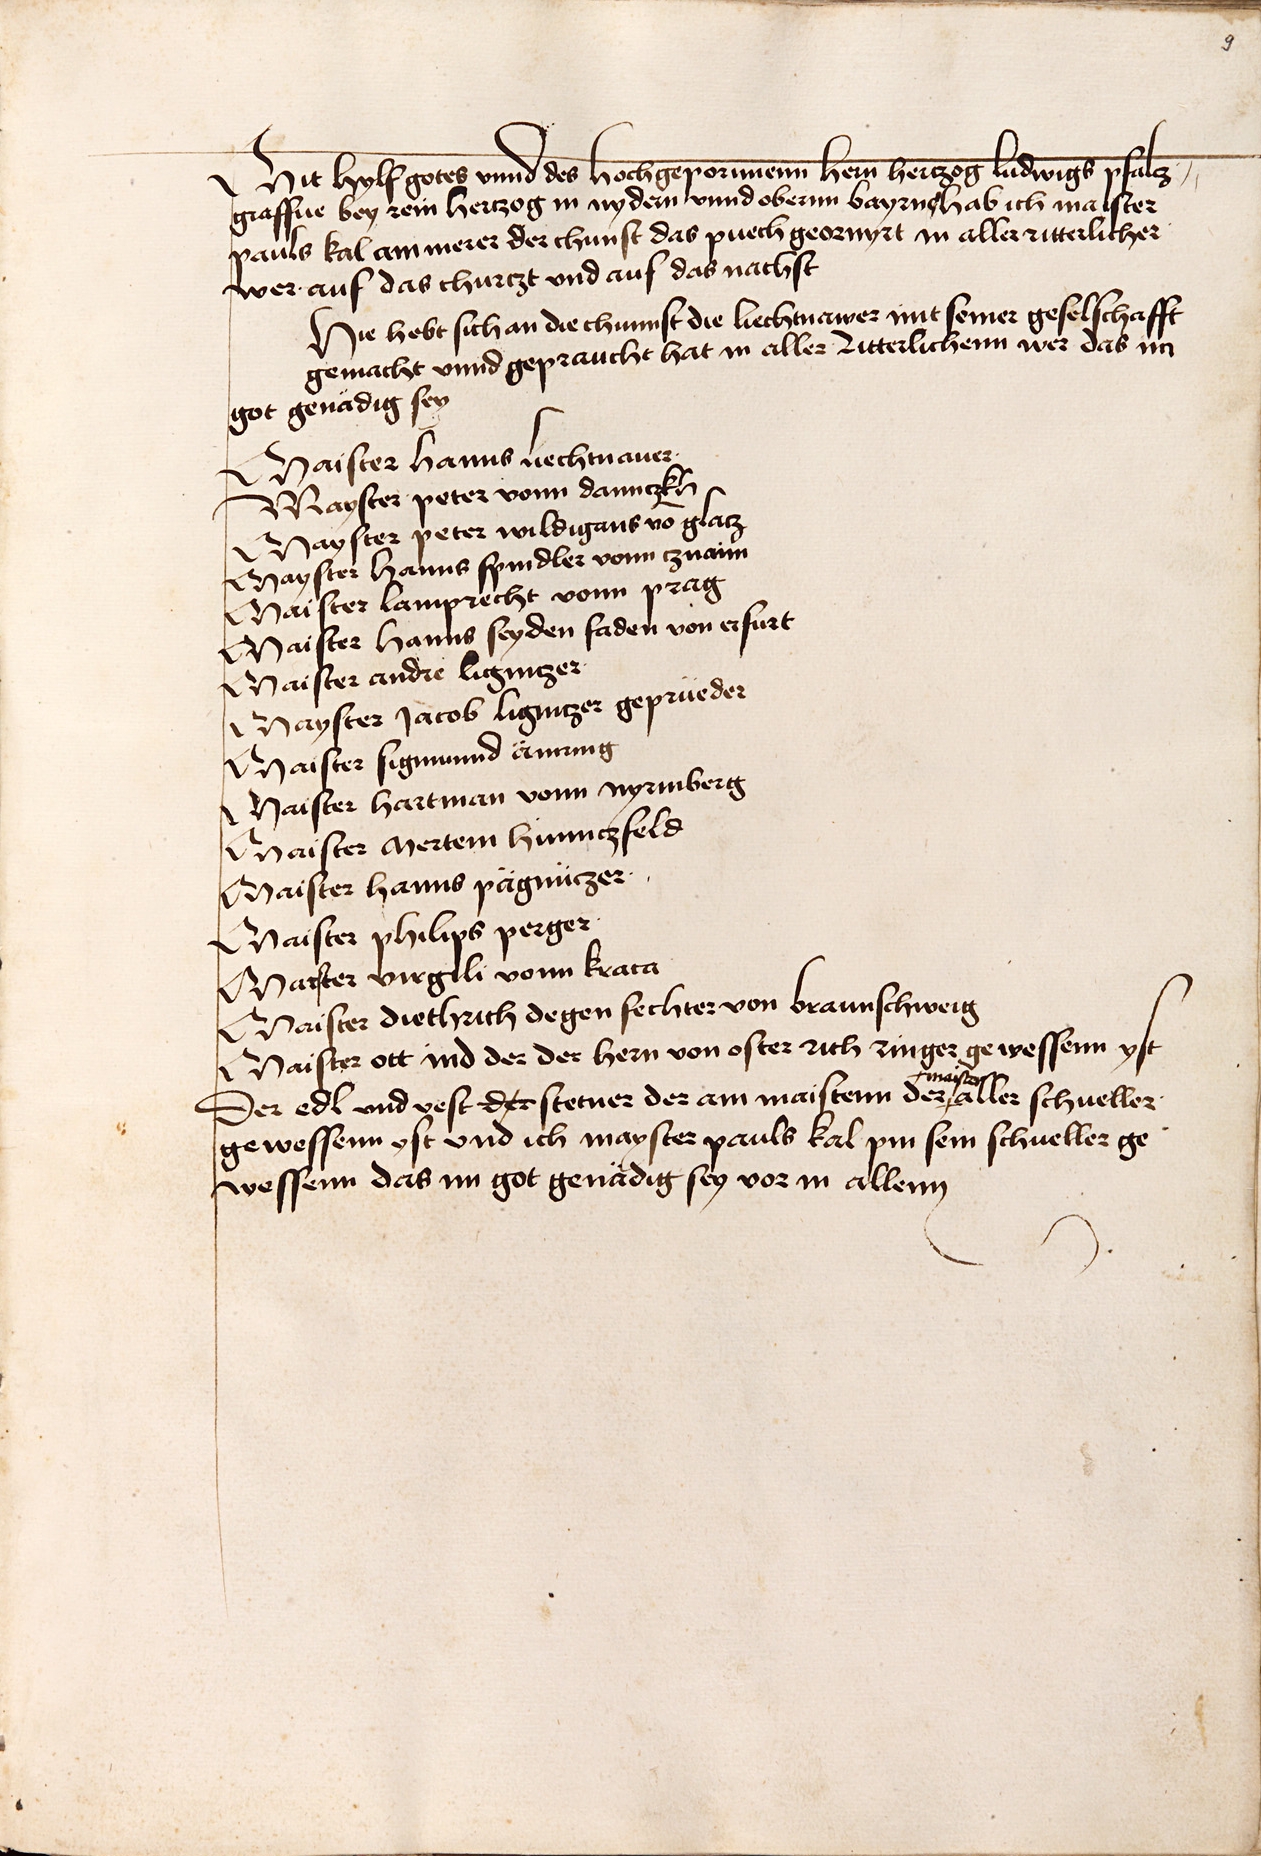 9
Mit hylf gotes vnnd des hochgeporimenn hern hertzog ludwigs pfalcz
graffue bey rein hertzog in nydern vnnd obernn bayrnn hab ich maister
pauls kal am merer der chunst das puech geornyrt in aller ritterlicher
wer auf das churczt vnd auf das nachst
Hie hebt sich an die chunnst die liechtnawer mit seiner geselschafft
gemacht vnnd gepraucht hat in aller Ritterlichenn wer das im
got genädig sey
Maister hanns liechtnauer
Mayster peter vonn dannczkh
Mayster peter wildigans vō glacz
Mayster hanns spindler vonn cznaim
Maister lamprecht vonn prag
Maister hanns seyden faden von erfurt
Maister andre lignitzer
Mayster Jacob lignitzer geprüeder
Maister sigmunnd ämring
Maister hartman vonn nyrmberg
Maister Mertein hunnczfeld
Maister hanns pägnüczer
Maister philips perger
Maister virgili vonn kraca
Maister diethrich degen fechter von braunschweig
Maister ott iud der der hern von osterrich ringer gewessenn yst
Der edl vnd vest der stetner der am maistenn der maister aller schueller
gewessenn yst vnd ich mayster pauls kal pin sein schueller ge
wessenn das im got genädig sey vor in allenn